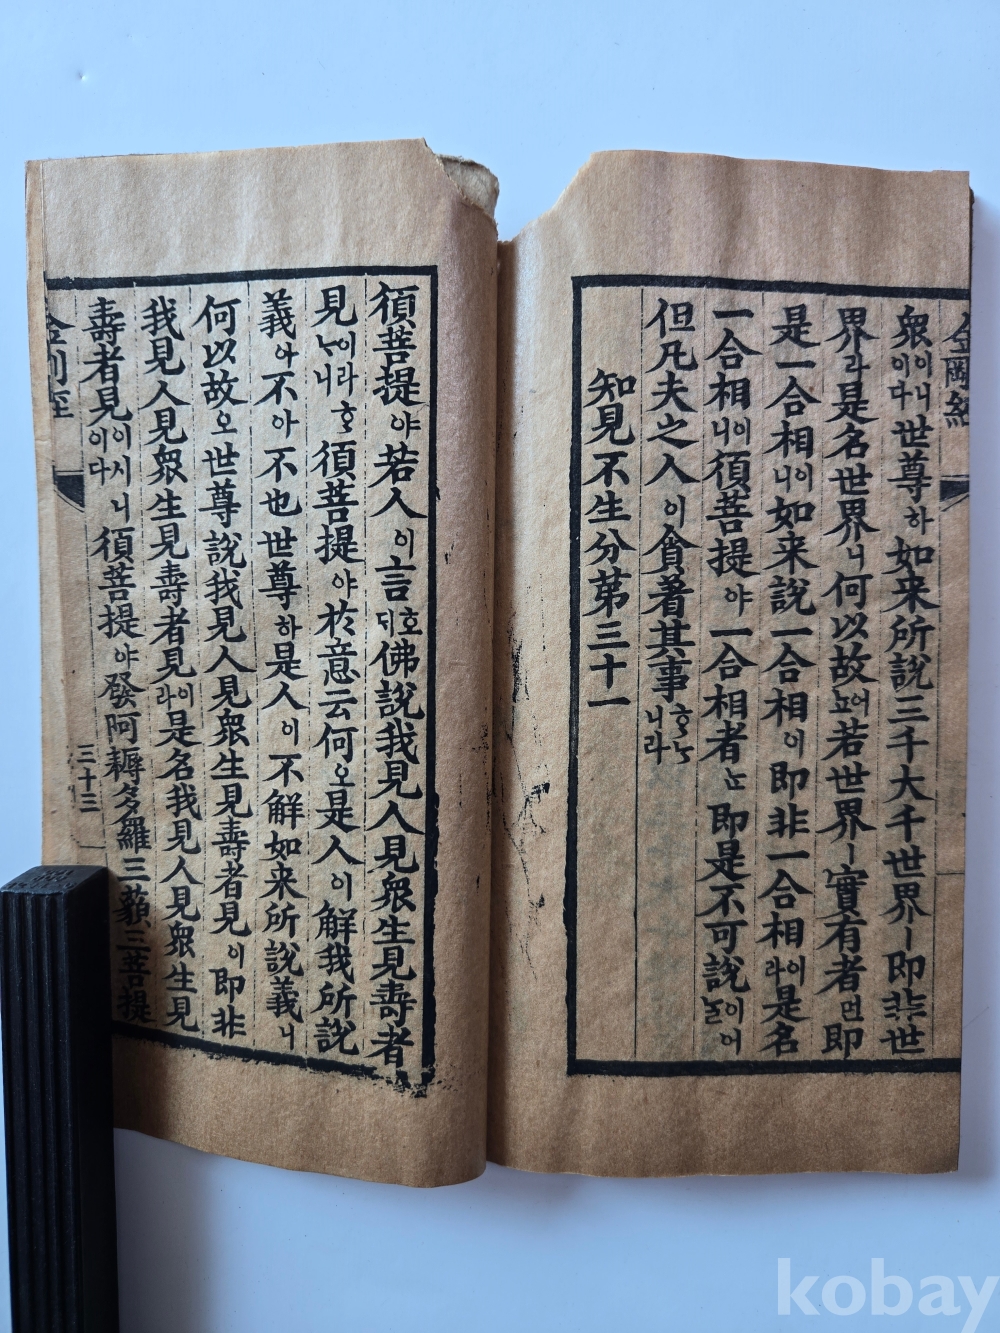 金剛經
衆이니이다世尊하如来所說三千大千世界ㅣ即非世
界라是名世界니何以故어뇨若世界ㅣ實有者면即
是一合相이니如来說一合相이即非一合相이라是名
一合相이니須菩提야一合相者는即是不可說이어늘
但凡夫之人이貪著其事ᄒᆞᄂᆞ니라
知見不生分第三十一
須菩提야若人이言호ᄃᆡ佛說我見人見衆生見壽者
見이라ᄒᆞᄂᆞ니須菩提야於意云何오是人이解我所說
義아不아不也世尊하是人이不解如来所說義니
何以故오世尊說我見人見衆生見壽者見이即非
我見人見衆生見壽者見이라是名我見人見衆生見
壽者見이시니이다須菩提야發阿耨多羅三藐三菩提
金剛經 三十三
kobay